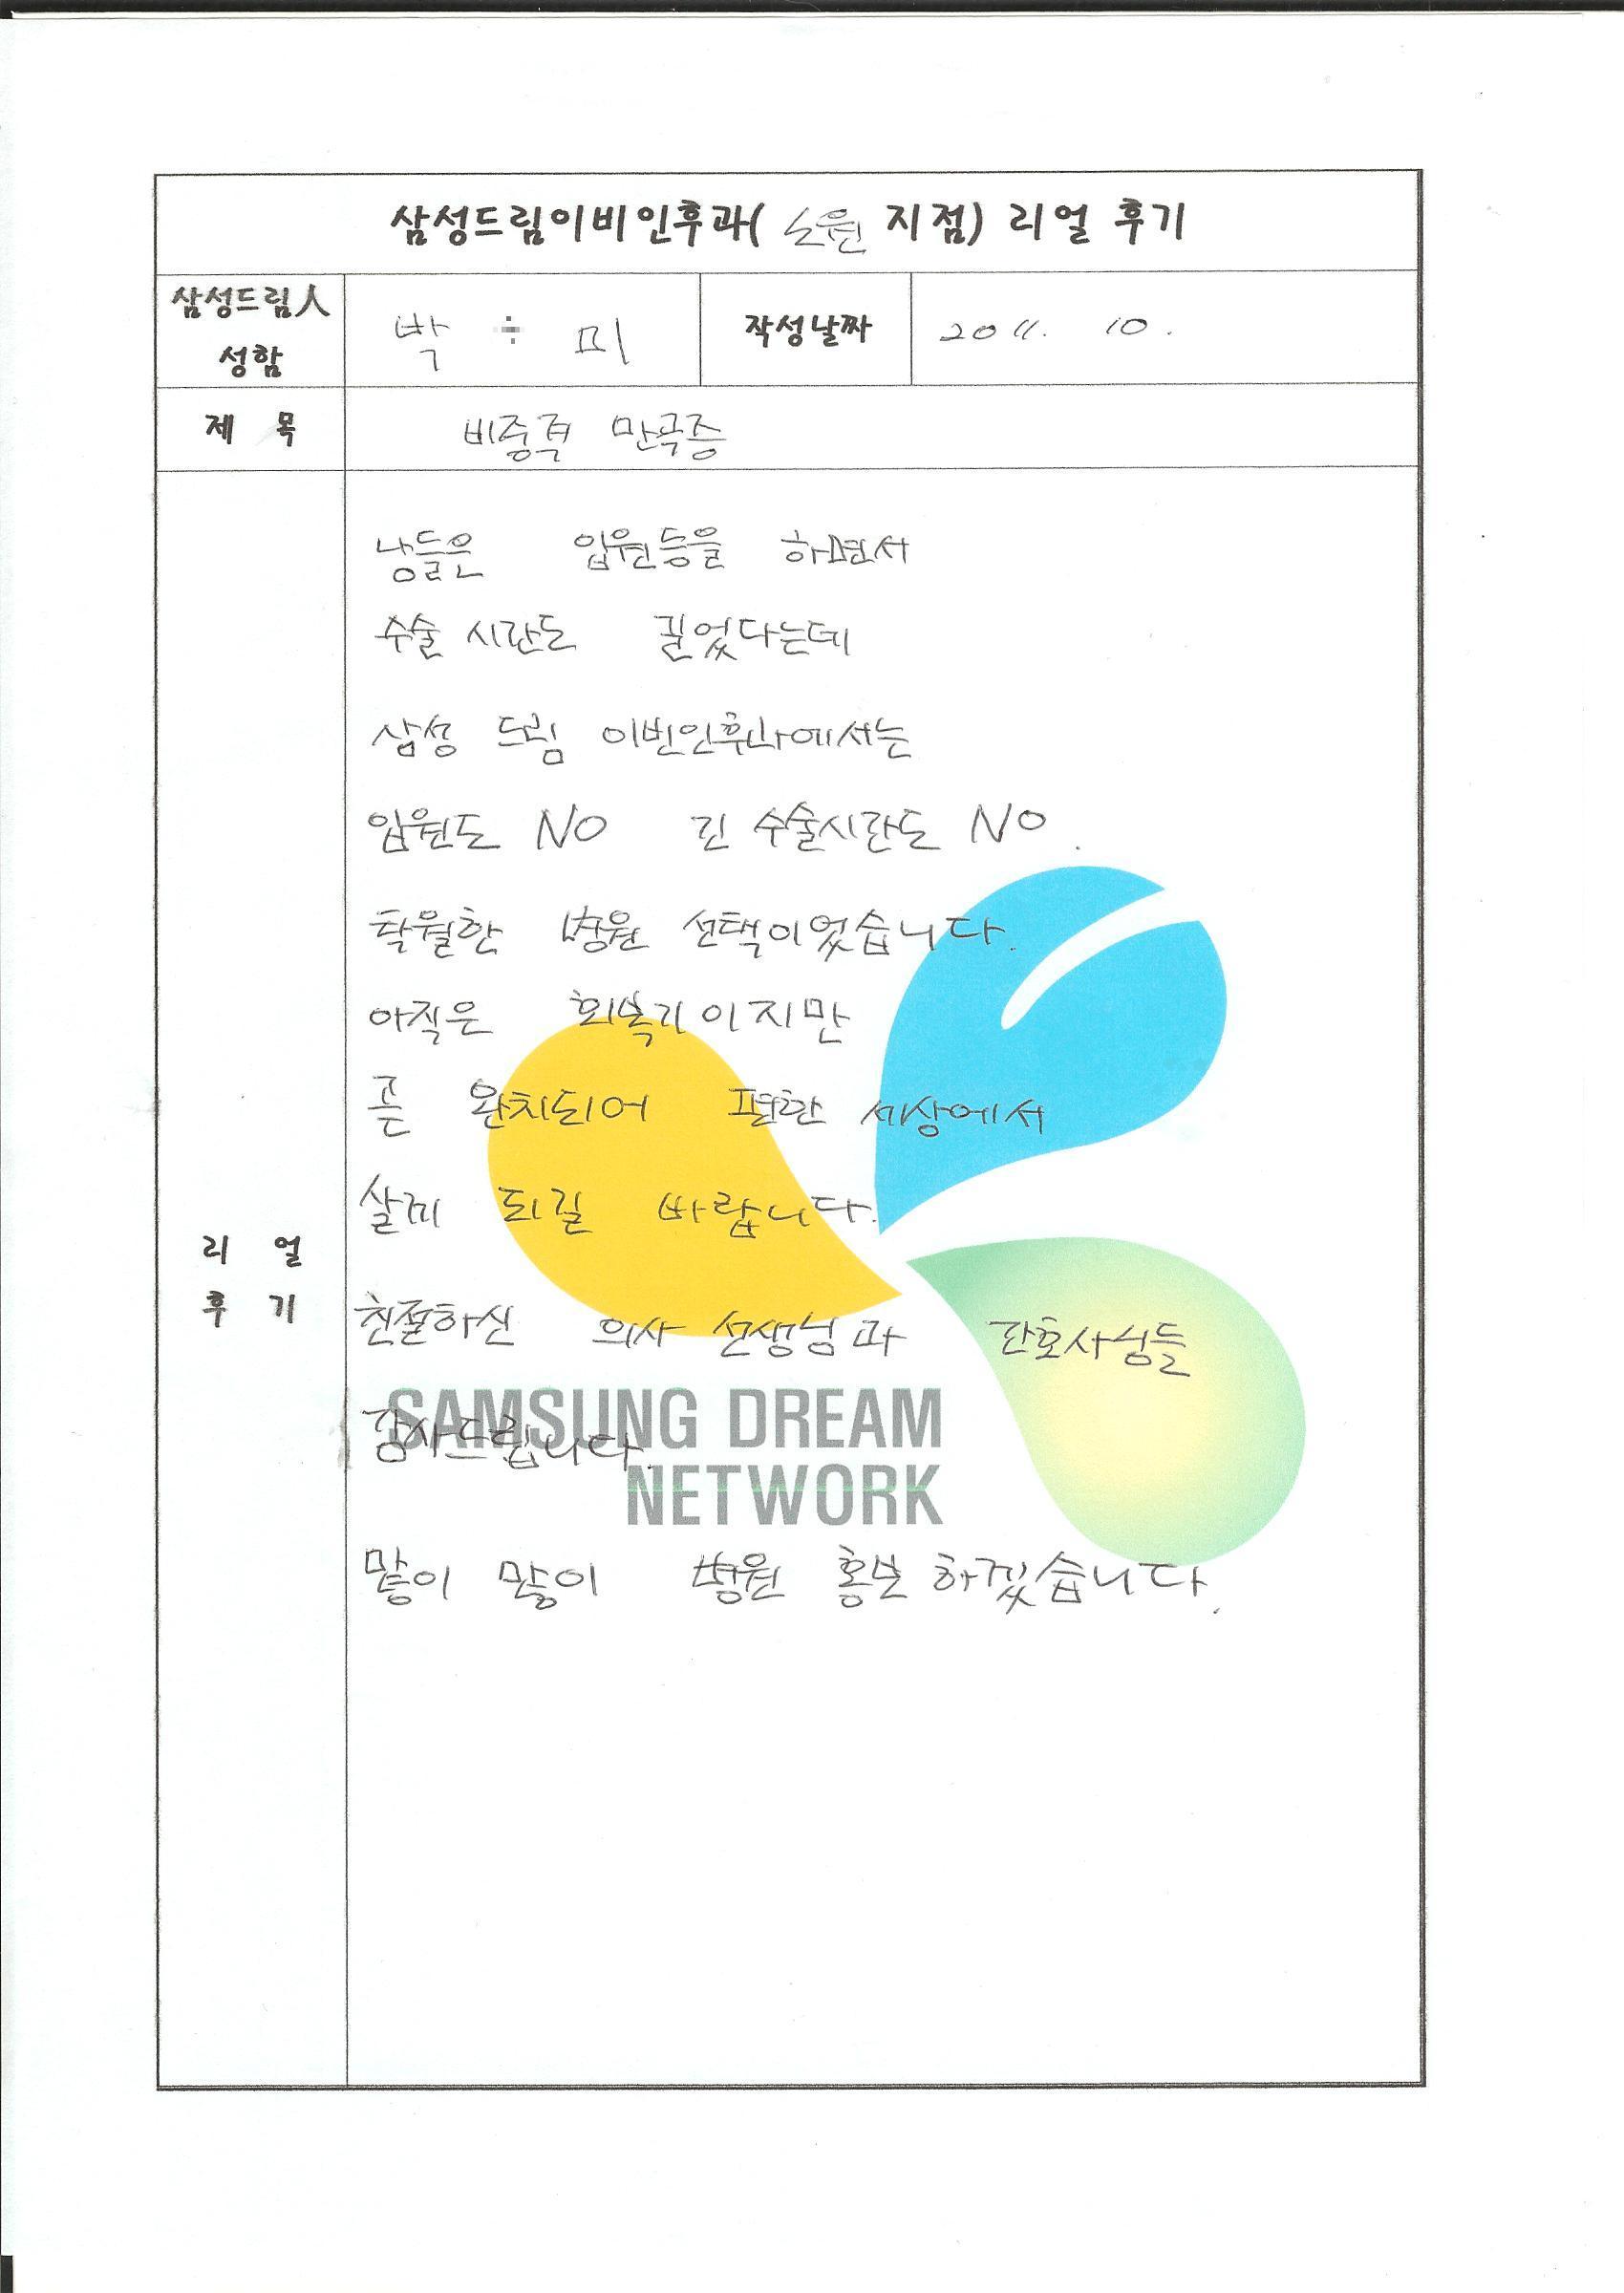 삼성드림이비인후과( 노원 지점) 리얼 후기
삼성드림人
성함
박 미
작성날짜
2011. 10.
제 목
비중격 만곡증
남들은 입원등을 하면서
수술 시간도 길었다는데
삼성 드림 이빈인후과에서는
입원도 NO 긴 수술시간도 NO.
탁월한 병원 선택이었습니다.
아직은 회복기이지만
곧 완치되어 편한 세상에서
살게 되길 바랍니다.
리 얼
후 기
친절하신 의사 선생님과 간호사님들
감사드립니다.
SAMSUNG DREAM
NETWORK
많이 많이 병원 홍보 하겠습니다.